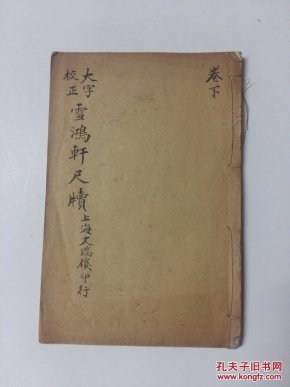 卷下
大字
校正
雪鴻軒尺牘
上海文瑞樓印行
孔夫子旧书网
www.kongfz.com